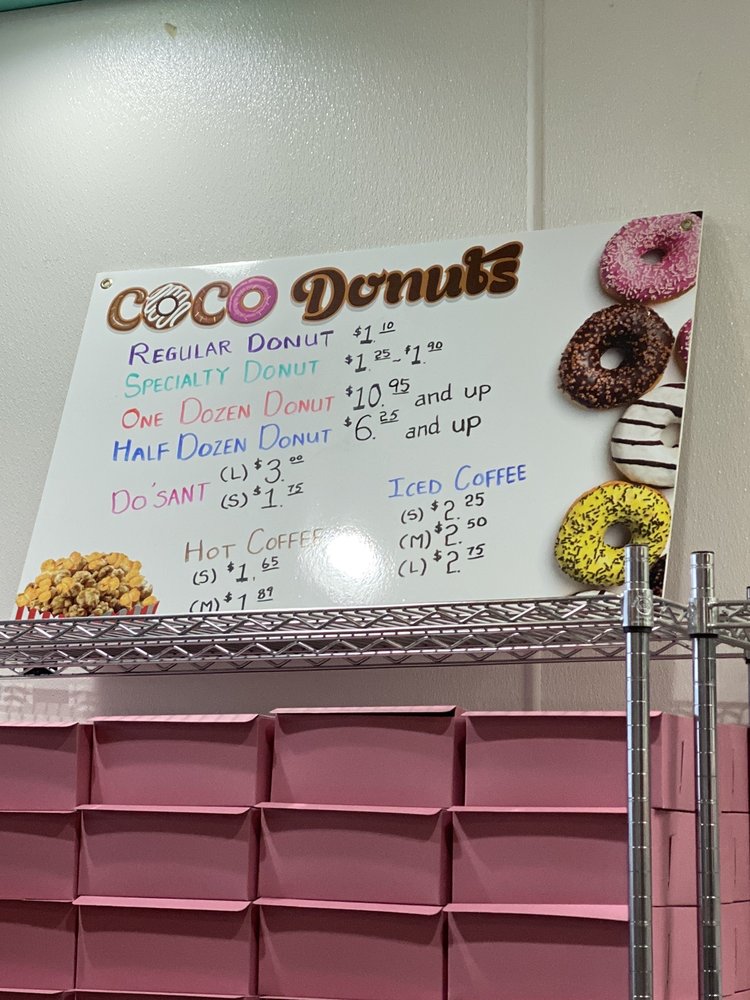 COCO Donuts
REGULAR DONUT $1.10
SPECIALTY DONUT $1.25-$1.90
ONE DOZEN DONUT $10.95 and up
HALF DOZEN DONUT $6.25 and up
DO'SANT (L) $3.00
(S) $1.75
HOT COFFEE
(S) $1.65
(M) $1.89
ICED COFFEE
(S) $2.25
(M) $2.50
(L) $2.75